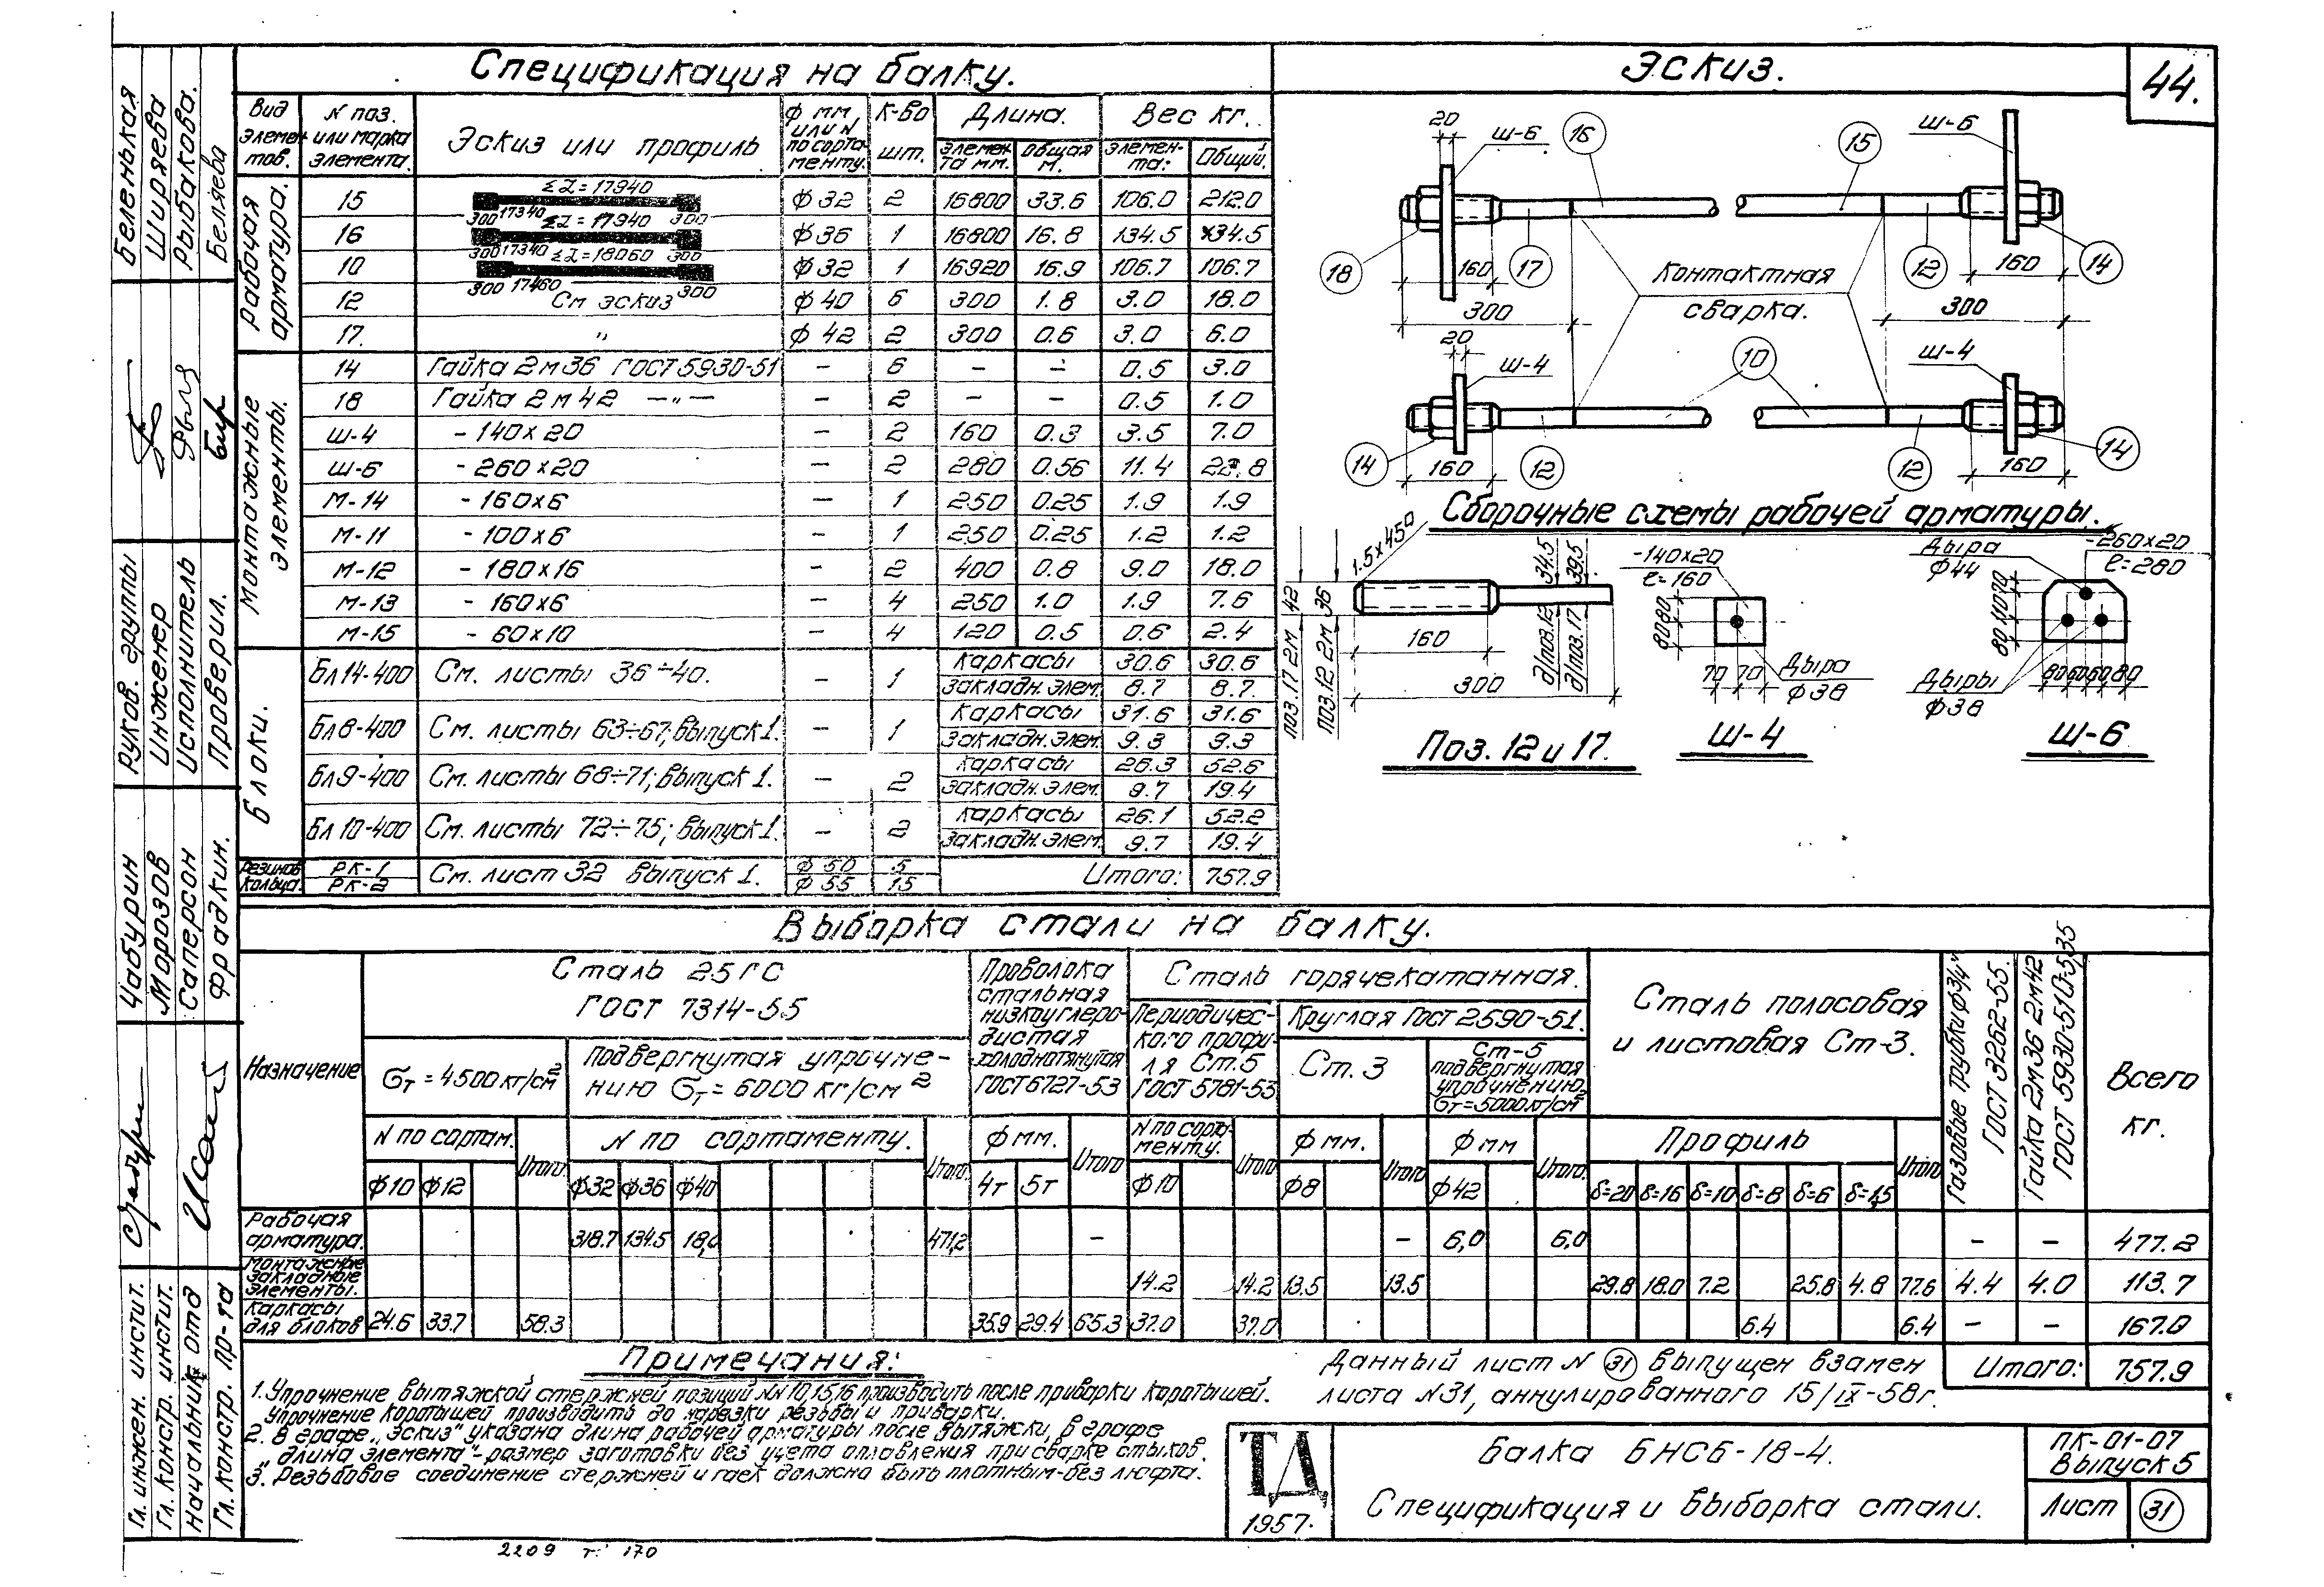 44.
Спецификация на балку.
Эскиз.
Вид элементов.
N поз. или марка элемента.
Эскиз или профиль
ф мм или N по сортаменту.
К-во шт.
Длина.
Вес кг.
Элемента мм.
Общая м.
Элемента:
Общий.
Рабочая арматура.
15 Σℓ=17940 300 17340 300 ф32 2 16800 33.6 106.0 212.0
16 Σℓ=17940 300 17340 300 ф36 1 16800 16.8 134.5 134.5
10 Σℓ=18060 300 17460 300 ф32 1 16920 16.9 106.7 106.7
12 См эскиз ф40 6 300 1.8 3.0 18.0
17. " ф42 2 300 0.6 3.0 6.0
Монтажные элементы.
14 Гайка 2м36 ГОСТ 5930-51 – 6 – – 0.5 3.0
18 Гайка 2м42 —"— – 2 – – 0.5 1.0
Ш-4 - 140х20 – 2 160 0.3 3.5 7.0
Ш-6 - 260х20 – 2 280 0.56 11.4 22.8
М-14 - 160х6 – 1 250 0.25 1.9 1.9
М-11 - 100х6 – 1 250 0.25 1.2 1.2
М-12 - 180х16 – 2 400 0.8 9.0 18.0
М-13 - 160х6 – 4 250 1.0 1.9 7.6
М-15 - 60х10 – 4 120 0.5 0.6 2.4
Блоки.
Бл14-400 См. листы 36÷40. – 1 каркасы 30.6 30.6
закладн. элем. 8.7 8.7.
Бл8-400 См. листы 63÷67; выпуск 1. – 1 каркасы 31.6 31.6
закладн. элем. 9.3 9.3
Бл9-400 См. листы 68÷71; выпуск 1. – 2 каркасы 26.3 52.6
закладн. элем. 9.7 19.4
Бл10-400 См. листы 72÷75; выпуск 1. – 2 каркасы 26.1 52.2
закладн. элем. 9.7 19.4
Резинов кольца. РК-1 См. лист 32 выпуск 1. ф50 5
РК-2 ф55 15
Итого: 757.9
20 Ш-6 16 15 Ш-6
18 160 17 12 160 14
300 300
Контактная
сварка.
20 Ш-4 10 Ш-4
14 160 12 12 160 14
Сборочные схемы рабочей арматуры.
1.5х45° 34.5 39.5
поз.17 2м 42
поз.12 2м 36
160
300
д/поз.12
д/поз.17
Поз. 12 и 17.
-140х20
ℓ=160
80 80
70 70
Дыра
ф38
Ш-4
Дыра
ф44
-260х20
ℓ=280
80 110 70
80 60 60 80
Дыры
ф38
Ш-6
Выборка стали на балку.
Назначение
Сталь 25ГС
ГОСТ 7314-55
σт = 4500кг/см²
подвергнутая упрочне-
нию σт = 6000 кг/см²
Проволока
стальная
низкоуглеро-
дистая
холоднотянутая
ГОСТ 6727-53
Сталь горячекатанная.
Периодичес-
кого профи-
ля Ст.5
ГОСТ 5781-53
Круглая ГОСТ 2590-51.
Ст. 3
Ст-5
подвергнутая
упрочнению
σт=5000кг/см²
Сталь полосовая
и листовая Ст-3.
Газовые трубки ф3/4"
ГОСТ 3262-55.
Гайка 2м36 2м42
Всего
кг.
N по сортам. Итого. N по сортаменту. Итого. ф мм. Итого N по сорта-
менту. Итого ф мм. Итого ф мм Итого. Профиль Итого
ф10 ф12 ф32 ф36 ф40 4т 5т ф10 ф8 ф42 δ=20 δ=16 δ=10 δ=8 δ=6 δ=1,5
Рабочая
арматура. 318.7 134.5 18,0 471,2 – – 6,0 6,0 – – 477.2
Монтажные
закладные
элементы. 14.2 14.2 13.5 13.5 29.8 18.0 7.2 25.8 4.8 77.6 4.4 4.0 113.7
Каркасы
для блоков 24.6 33.7 58.3 35.9 29.4 65.3 37.0 37.0 6.4 6.4 – – 167.0
Итого: 757.9
Примечания:
1. Упрочнение вытяжкой стержней позиций NN 10,15,16 производить после приварки коротышей.
Упрочнение коротышей производить до нарезки резьбы и приварки.
2. В графе „Эскиз" указана длина рабочей арматуры после вытяжки, в графе
„длина элемента"-размер заготовки без учета оплавления при сварке стыков.
3. Резьбовое соединение стержней и гаек должно быть плотным-без люфта.
Данный лист N 31 выпущен взамен
листа N31, аннулированного 15/IX-58г.
ТД
1957.
Балка БНСБ-18-4.
Спецификация и выборка стали.
ПК-01-07
Выпуск 5
Лист 31
Беленькая
Ширяева
Рыбакова.
Беляева
Руков. группы
Инженер
Исполнитель
Проверил.
Чабурин
Морозов
Саперсон
Фрадкин.
Гл. инжен. инстит.
Гл. констр. инстит.
Начальник отд
Гл. констр. пр-та
2209 т. 170